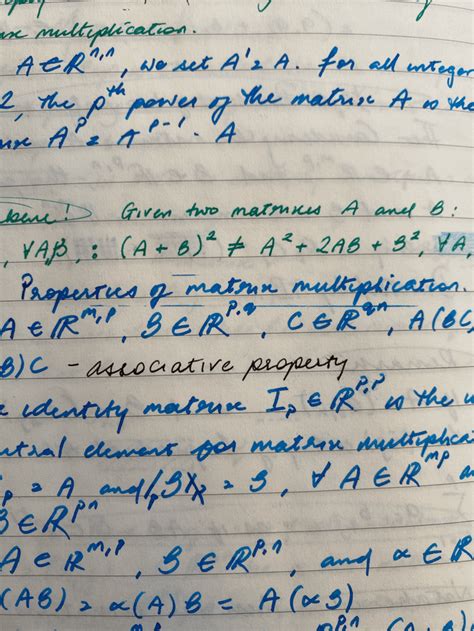 multiplication.
A ∈ ℝⁿ'ⁿ, we set A¹ = A. for all integer
2, the pᵗʰ power of the matrix A is the
Aᵖ = Aᵖ⁻¹ · A
Given two matrixes A and B :
, ∀A,B, : (A + B)² ≠ A² + 2AB + B², ∀A,
Properties of matrix multiplication.
A ∈ ℝᵐ'ᵖ, B ∈ ℝᵖ'q, C ∈ ℝq'ⁿ, A(BC)
B)C - associative property
identity matrix Iₚ ∈ ℝᵖ'ᵖ is the
ntral element for matrix multiplica
ₚ = A and IₚB = B, ∀ A ∈ ℝᵐᵖ
B ∈ ℝᵖⁿ
A ∈ ℝᵐ'ᵖ, B ∈ ℝᵖ'ⁿ, and α ∈ ℝ
(AB) = α(A)B = A(αB)